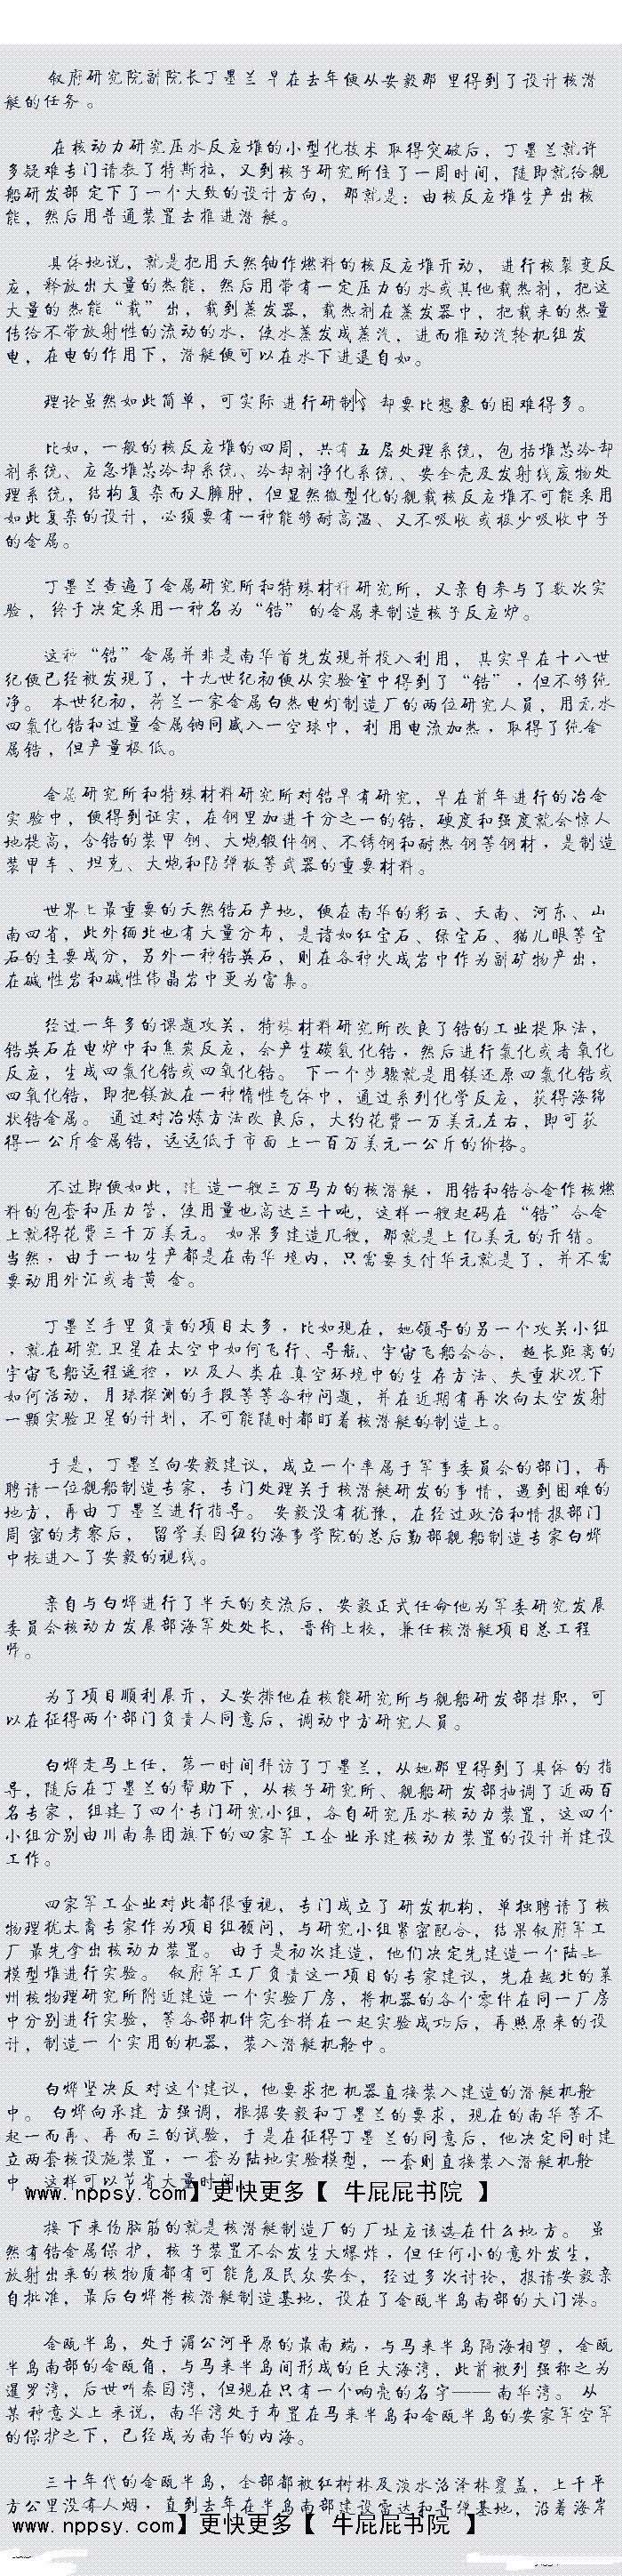 叙府研究院副院长丁墨兰早在去年便从安毅那里得到了设计核潜
艇的任务。
在核动力研究压水反应堆的小型化技术取得突破后，丁墨兰就许
多疑难专门请教了特斯拉，又到核子研究所住了一周时间，随即就给舰
船研发部定下了一个大致的设计方向，那就是：由核反应堆生产出核
能，然后用普通装置去推进潜艇。
具体地说，就是把用天然铀作燃料的核反应堆开动，进行核裂变反
应，释放出大量的热能，然后用带有一定压力的水或其他载热剂，把这
大量的热能“载”出，载到蒸发器，载热剂在蒸发器中，把载来的热量
传给不带放射性的流动的水，使水蒸发成蒸汽，进而推动汽轮机组发
电，在电的作用下，潜艇便可以在水下进退自如。
理论虽然如此简单，可实际进行研制，却要比想象的困难得多。
比如，一般的核反应堆的四周，共有五层处理系统，包括堆芯冷却
剂系统、应急堆芯冷却系统、冷却剂净化系统、安全壳及发射线废物处
理系统，结构复杂而又臃肿，但显然微型化的舰载核反应堆不可能采用
如此复杂的设计，必须要有一种能够耐高温、又不吸收或极少吸收中子
的金属。
丁墨兰查遍了金属研究所和特殊材料研究所，又亲自参与了数次实
验，终于决定采用一种名为“锆”的金属来制造核子反应炉。
这种“锆”金属并非是南华首先发现并投入利用，其实早在十八世
纪便已经被发现了，十九世纪初便从实验室中得到了“锆”，但不够纯
净。本世纪初，荷兰一家金属白热电灼制造厂的两位研究人员，用无水
四氯化锆和过量金属钠同盛入一空球中，利用电流加热，取得了纯金
属锆，但产量极低。
金属研究所和特殊材料研究所对锆早有研究，早在前年进行的冶金
实验中，便得到证实，在钢里加进千分之一的锆，硬度和强度就会惊人
地提高，含锆的装甲钢、大炮锻件钢、不锈钢和耐热钢等钢材，是制造
装甲车、坦克、大炮和防弹板等武器的重要材料。
世界上最重要的天然锆石产地，便在南华的彩云、天南、河东、山
南四省，此外缅北也有大量分布，是诸如红宝石、绿宝石、猫儿眼等宝
石的主要成分，另外一种锆英石，则在各种火成岩中作为副矿物产出，
在碱性岩和碱性伟晶岩中更为富集。
经过一年多的课题攻关，特殊材料研究所改良了锆的工业提取法，
锆英石在电炉中和焦炭反应，会产生碳氮化锆，然后进行氯化或者氧化
反应，生成四氯化锆或四氧化锆。下一个步骤就是用镁还原四氯化锆或
四氧化锆，即把镁放在一种惰性气体中，通过系列化学反应，获得海绵
状锆金属。通过对冶炼方法改良后，大约花费一万美元左右，即可获
得一公斤金属锆，远远低于市面上一百万美元一公斤的价格。
不过即便如此，建造一艘三万马力的核潜艇，用锆和锆合金作核燃
料的包套和压力管，使用量也高达三十吨，这样一艘起码在“锆”合金
上就得花费三千万美元。如果多建造几艘，那就是上亿美元的开销。
当然，由于一切生产都是在南华境内，只需要支付华元就是了，并不需
要动用外汇或者黄金。
丁墨兰手里负责的项目太多，比如现在，她领导的另一个攻关小组
，就在研究卫星在太空中如何飞行、导航、宇宙飞船会合，超长距离的
宇宙飞船远程遥控，以及人类在真空环境中的生存方法、失重状况下
如何活动，月球探测的手段等等各种问题，并在近期有再次向太空发射
一颗实验卫星的计划，不可能随时都盯着核潜艇的制造上。
于是，丁墨兰向安毅建议，成立一个隶属于军事委员会的部门，再
聘请一位舰船制造专家，专门处理关于核潜艇研发的事情，遇到困难的
地方，再由丁墨兰进行指导。安毅没有犹豫，在经过政治和情报部门
周密的考察后，留学美国纽约海事学院的总后勤部舰船制造专家白烨
中校进入了安毅的视线。
亲自与白烨进行了半天的交流后，安毅正式任命他为军委研究发展
委员会核动力发展部海军处处长，晋衔上校，兼任核潜艇项目总工程
师。
为了项目顺利展开，又安排他在核能研究所与舰船研发部挂职，可
以在征得两个部门负责人同意后，调动中方研究人员。
白烨走马上任，第一时间拜访了丁墨兰，从她那里得到了具体的指
导，随后在丁墨兰的帮助下，从核子研究所、舰船研发部抽调了近两百
名专家，组建了四个专门研究小组，各自研究压水核动力装置，这四个
小组分别由川南集团旗下的四家军工企业承建核动力装置的设计并建设
工作。
四家军工企业对此都很重视，专门成立了研发机构，单独聘请了核
物理犹太裔专家作为项目组顾问，与研究小组紧密配合，结果叙府军工
厂最先拿出核动力装置。由于是初次建造，他们决定先建造一个陆上
模型堆进行实验。叙府军工厂负责这一项目的专家建议，先在越北的莱
州核物理研究所附近建造一个实验厂房，将机器的各个零件在同一厂房
中分别进行实验，等各部机件完全拼在一起实验成功后，再照原来的设
计，制造一个实用的机器，装入潜艇机舱中。
白烨坚决反对这个建议，他要求把机器直接装入建造的潜艇机舱
中。白烨向承建方强调，根据安毅和丁墨兰的要求，现在的南华等不
起一而再、再而三的试验，于是在征得丁墨兰的同意后，他决定同时建
立两套核设施装置，一套为陆地实验模型，一套则直接装入潜艇机舱
中，这样可以节省大量时间。
www.nppsy.com】更快更多【 牛屁屁书院 】
接下来伤脑筋的就是核潜艇制造厂的厂址应该选在什么地方。虽
然有锆金属保护，核子装置不会发生大爆炸，但任何小的意外发生，
放射出来的核物质都有可能危及民众安全，经过多次讨论，报请安毅亲
自批准，最后白烨将核潜艇制造基地，设在了金瓯半岛南部的大门港。
金瓯半岛，处于湄公河平原的最南端，与马来半岛隔海相望，金瓯
半岛南部的金瓯角，与马来半岛间形成的巨大海湾，此前被列强称之为
暹罗湾，后世叫泰国湾，但现在只有一个响亮的名字——南华湾。从
某种意义上来说，南华湾处于布置在马来半岛和金瓯半岛的安家军空军
的保护之下，已经成为南华的内海。
三十年代的金瓯半岛，全部都被红树林及淡水沼泽林覆盖，上千平
方公里没有人烟，直到去年在半岛南部建设雷达和导弹基地，沿着海岸
www.nppsy.com】更快更多【 牛屁屁书院 】